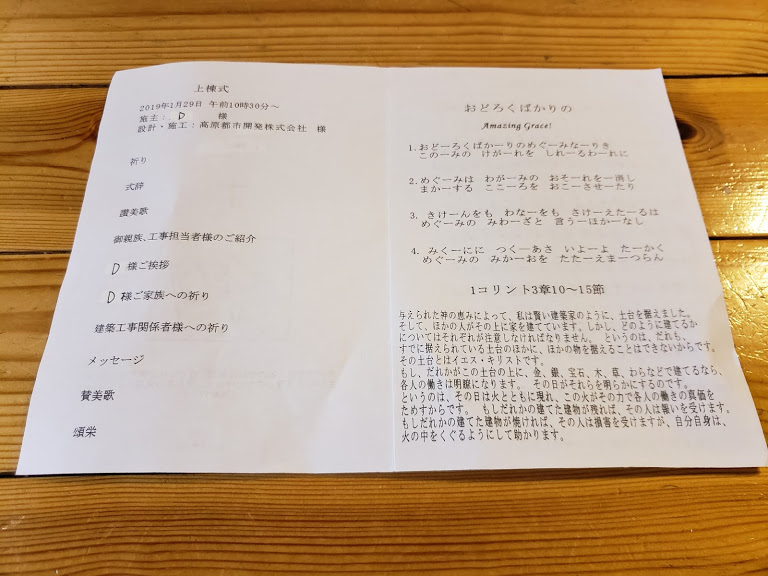 上棟式
2019年1月29日 午前10時30分～
施主： D 様
設計・施工：高原都市開発株式会社 様
祈り
式辞
讃美歌
御親族、工事担当者様のご紹介
D 様ご挨拶
D 様ご家族への祈り
建築工事関係者様への祈り
メッセージ
賛美歌
頌栄
おどろくばかりの
Amazing Grace!
1.おどーろくばかーりのめぐーみなーりき
このーみの けがーれを しれーるわーれに
2.めぐーみは わがーみの おそーれをー消し
まかーする こころーを おこーさせーたり
3. きけーんをも わなーをも さけーえたーるは
めぐーみの みわーざと 言うーほかーなし
4. みくーにに つくーあさ いよーよ たーかく
めぐーみの みかーおを たたーえまーつらん
1コリント3章10～15節
与えられた神の恵みによって、私は賢い建築家のように、土台を据えました。
そして、ほかの人がその上に家を建てています。しかし、どのように建てるか
についてはそれぞれが注意しなければなりません。 というのは、だれも、
すでに据えられている土台のほかに、ほかの物を据えることはできないからです。
その土台とはイエス・キリストです。
もし、だれかがこの土台の上に、金、銀、宝石、木、草、わらなどで建てるなら、
各人の働きは明瞭になります。 その日がそれらを明らかにするのです。
というのは、その日は火とともに現れ、この火がその力で各人の働きの真価を
ためすからです。 もしだれかの建てた建物が残れば、その人は報いを受けます。
もしだれかの建てた建物が焼ければ、その人は損害を受けますが、自分自身は、
火の中をくぐるようにして助かります。